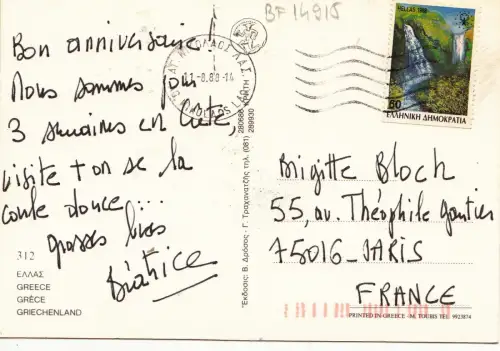 BF 14915
Bon anniversaire!
Nous sommes pour
3 semaines en Crète,
visite t on se la
coule douce...
grosses bises
Béatrice
312
ΕΛΛΑΣ
GREECE
GRÈCE
GRIECHENLAND
ΑΓ. ΝΙΚΟΛΑΟΣ ΛΑΣ.
11-8.88-14
NIKOLAOS
"Εκδοσις: Β. Δρόσος - Γ. Τραχανατζής τηλ. (081) 280686 ΚΡΗΤΗ
289930
HELLAS 1988
60
ΕΛΛΗΝΙΚΗ ΔΗΜΟΚΡΑΤΙΑ
Brigitte Bloch
55, av. Théophile Gautier
75016 - PARIS
FRANCE
PRINTED IN GREECE - M. TOUBIS TEL: 9923874